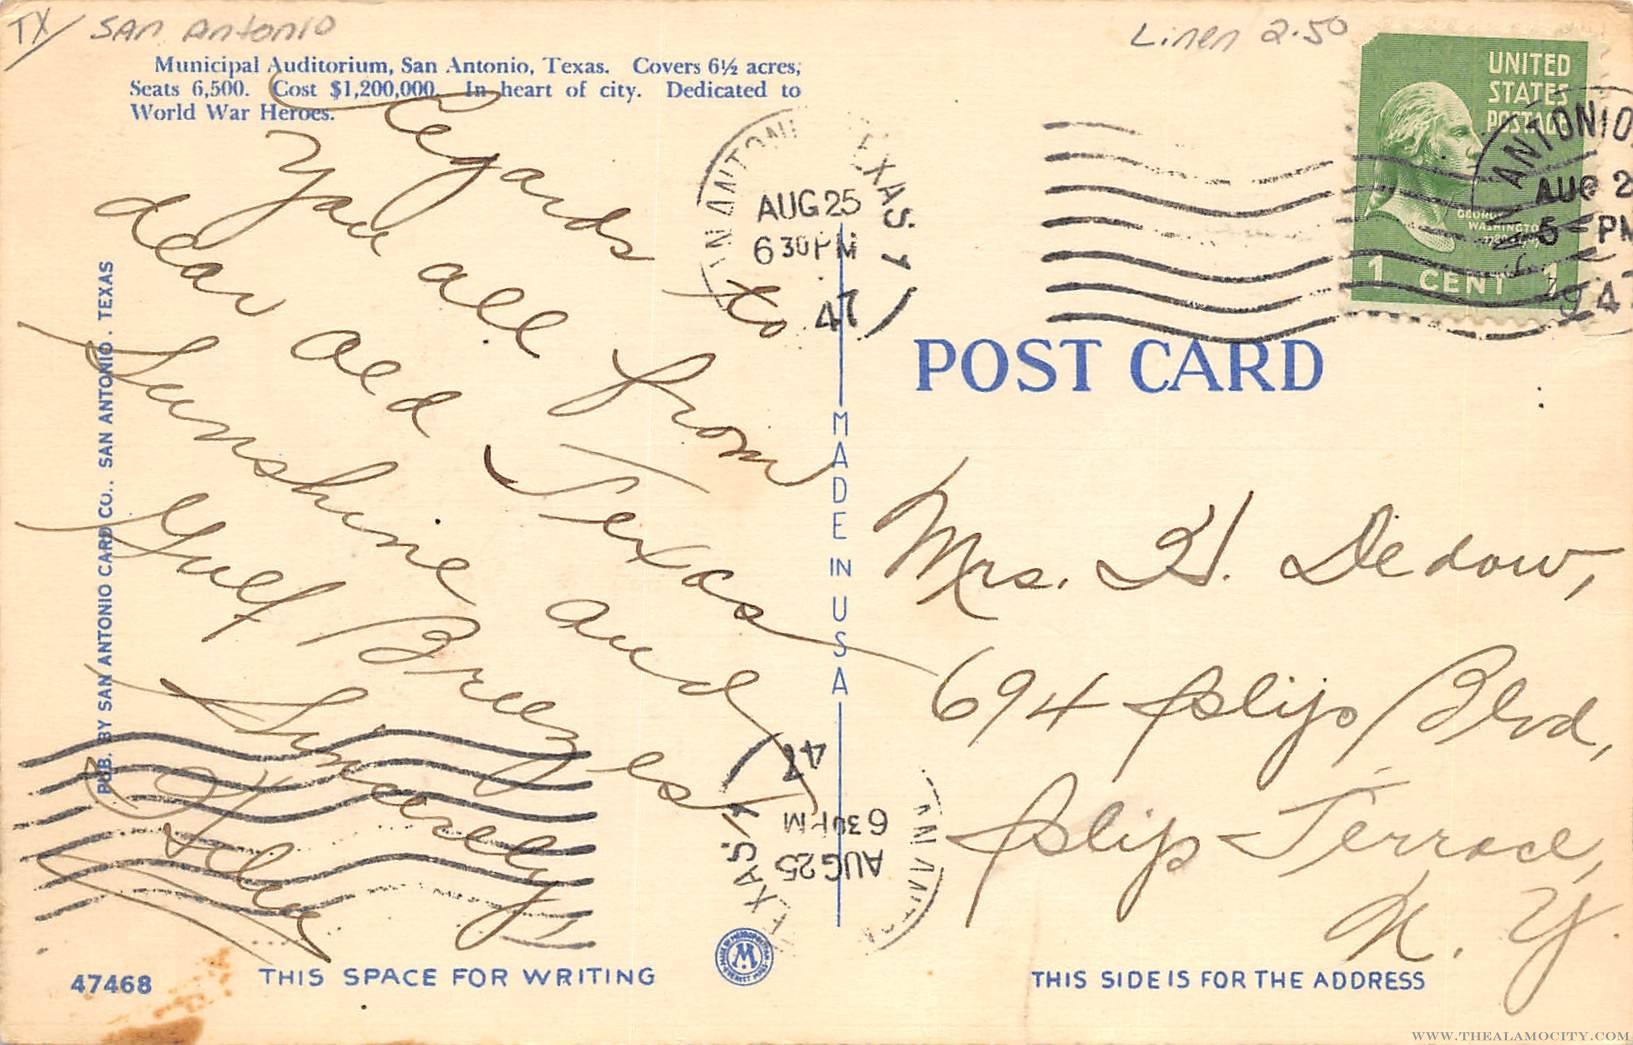 TX/ San Antonio
Linen 2.50
Municipal Auditorium, San Antonio, Texas. Covers 6½ acres,
Seats 6,500. Cost $1,200,000. In heart of city. Dedicated to
World War Heroes.
Regards to
you all from
dear old Texas
Sunshine and
Gulf Breezes
Sincerely,
PUB. BY SAN ANTONIO CARD CO., SAN ANTONIO, TEXAS
47468
THIS SPACE FOR WRITING
AN ANTONIO TEXAS. 1
AUG 25
6 30 PM
47
UNITED
STATES
POSTAGE
GEORGE
WASHINGTON
1 CENT 1
ANTONIO,
AUG 2
5 PM
194
POST CARD
MADE IN USA
Mrs. H. Dedow,
694 Islip Blvd,
Islip Terrace,
N. Y.
TEXAS. 1
AUG 25
6 30 PM
47
M
THIS SIDE IS FOR THE ADDRESS
WWW.THEALAMOCITY.COM